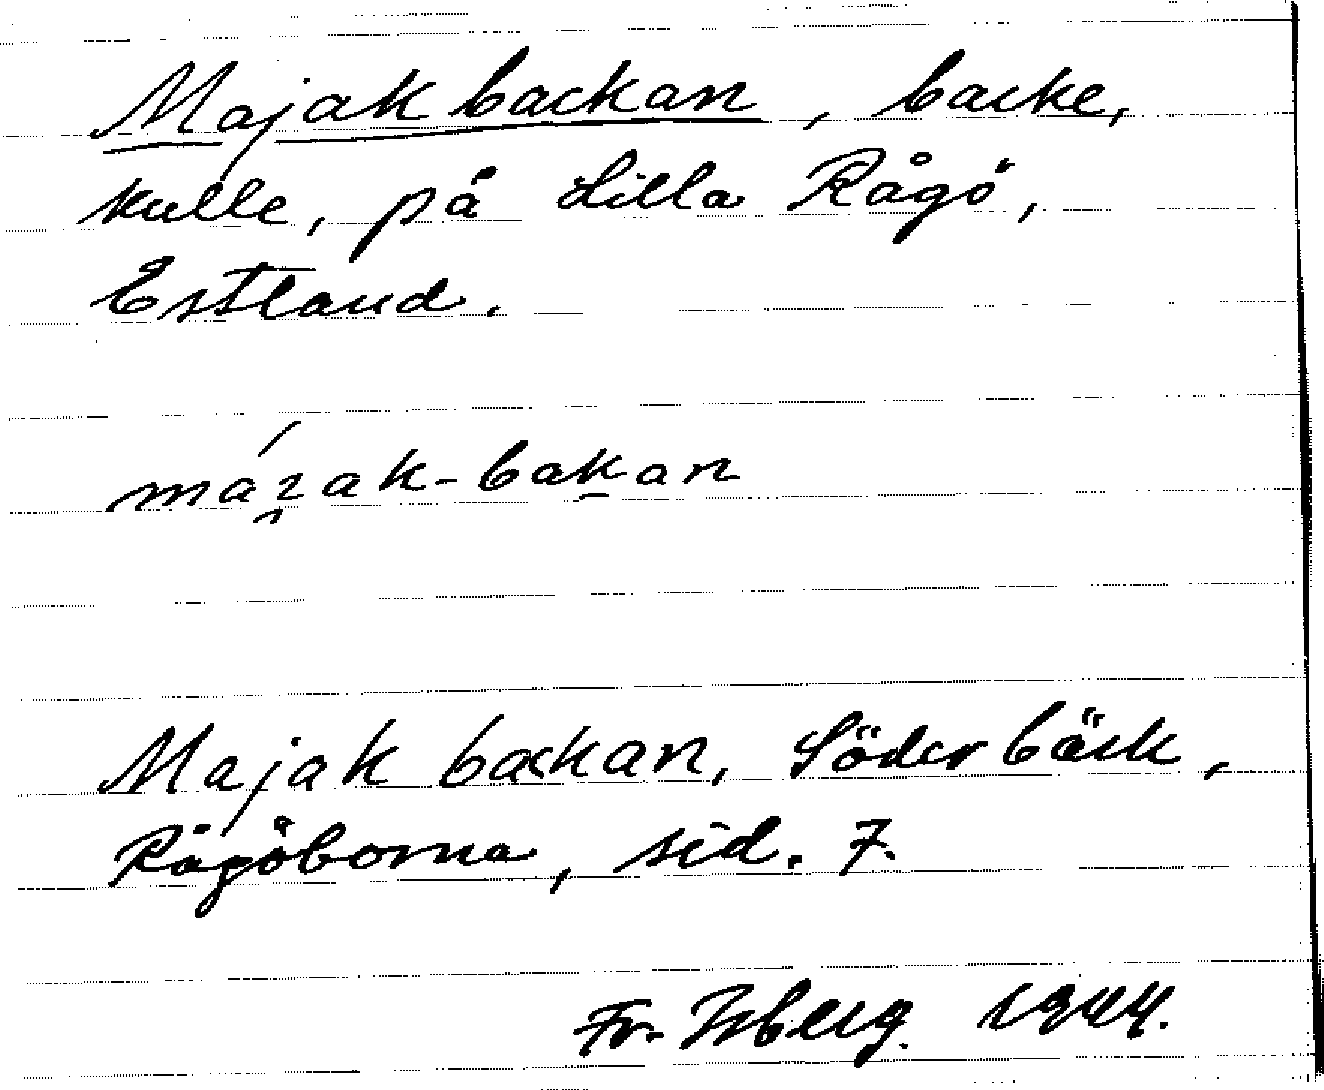 Majak backan, backe,
kulle, på Lilla Rågö,
Estland.
mázak-bakan
Majak backan, Söderbäck,
Rågöborna, sid. 7.
Fr. Isberg. 1944.